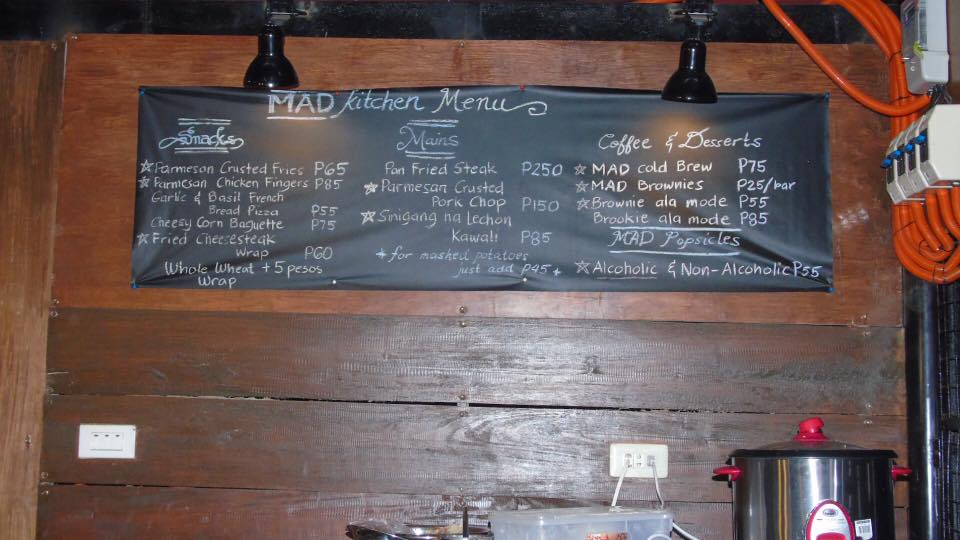 MAD Kitchen Menu
Snacks
☆ Parmesan Crusted Fries P65
☆ Parmesan Chicken Fingers P85
Garlic & Basil French
Bread Pizza P55
Cheesy Corn Baguette P75
☆ Fried Cheesesteak
Wrap P60
Whole Wheat +5 pesos
Wrap
Mains
Pan Fried Steak P250
☆ Parmesan Crusted
Pork Chop P150
☆ Sinigang na Lechon
Kawali P85
+ for mashed potatoes
just add P45 +
Coffee & Desserts
☆ MAD cold Brew P75
☆ MAD Brownies P25/bar
☆ Brownie ala mode P55
Brookie ala mode P85
MAD Popsicles
☆ Alcoholic & Non-Alcoholic P55